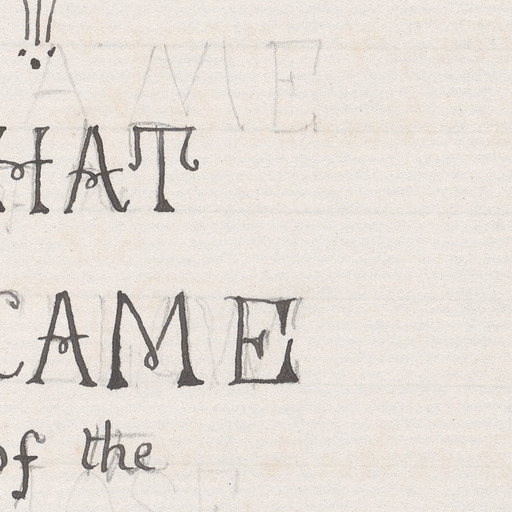 !!!
HAT
CAME
of the